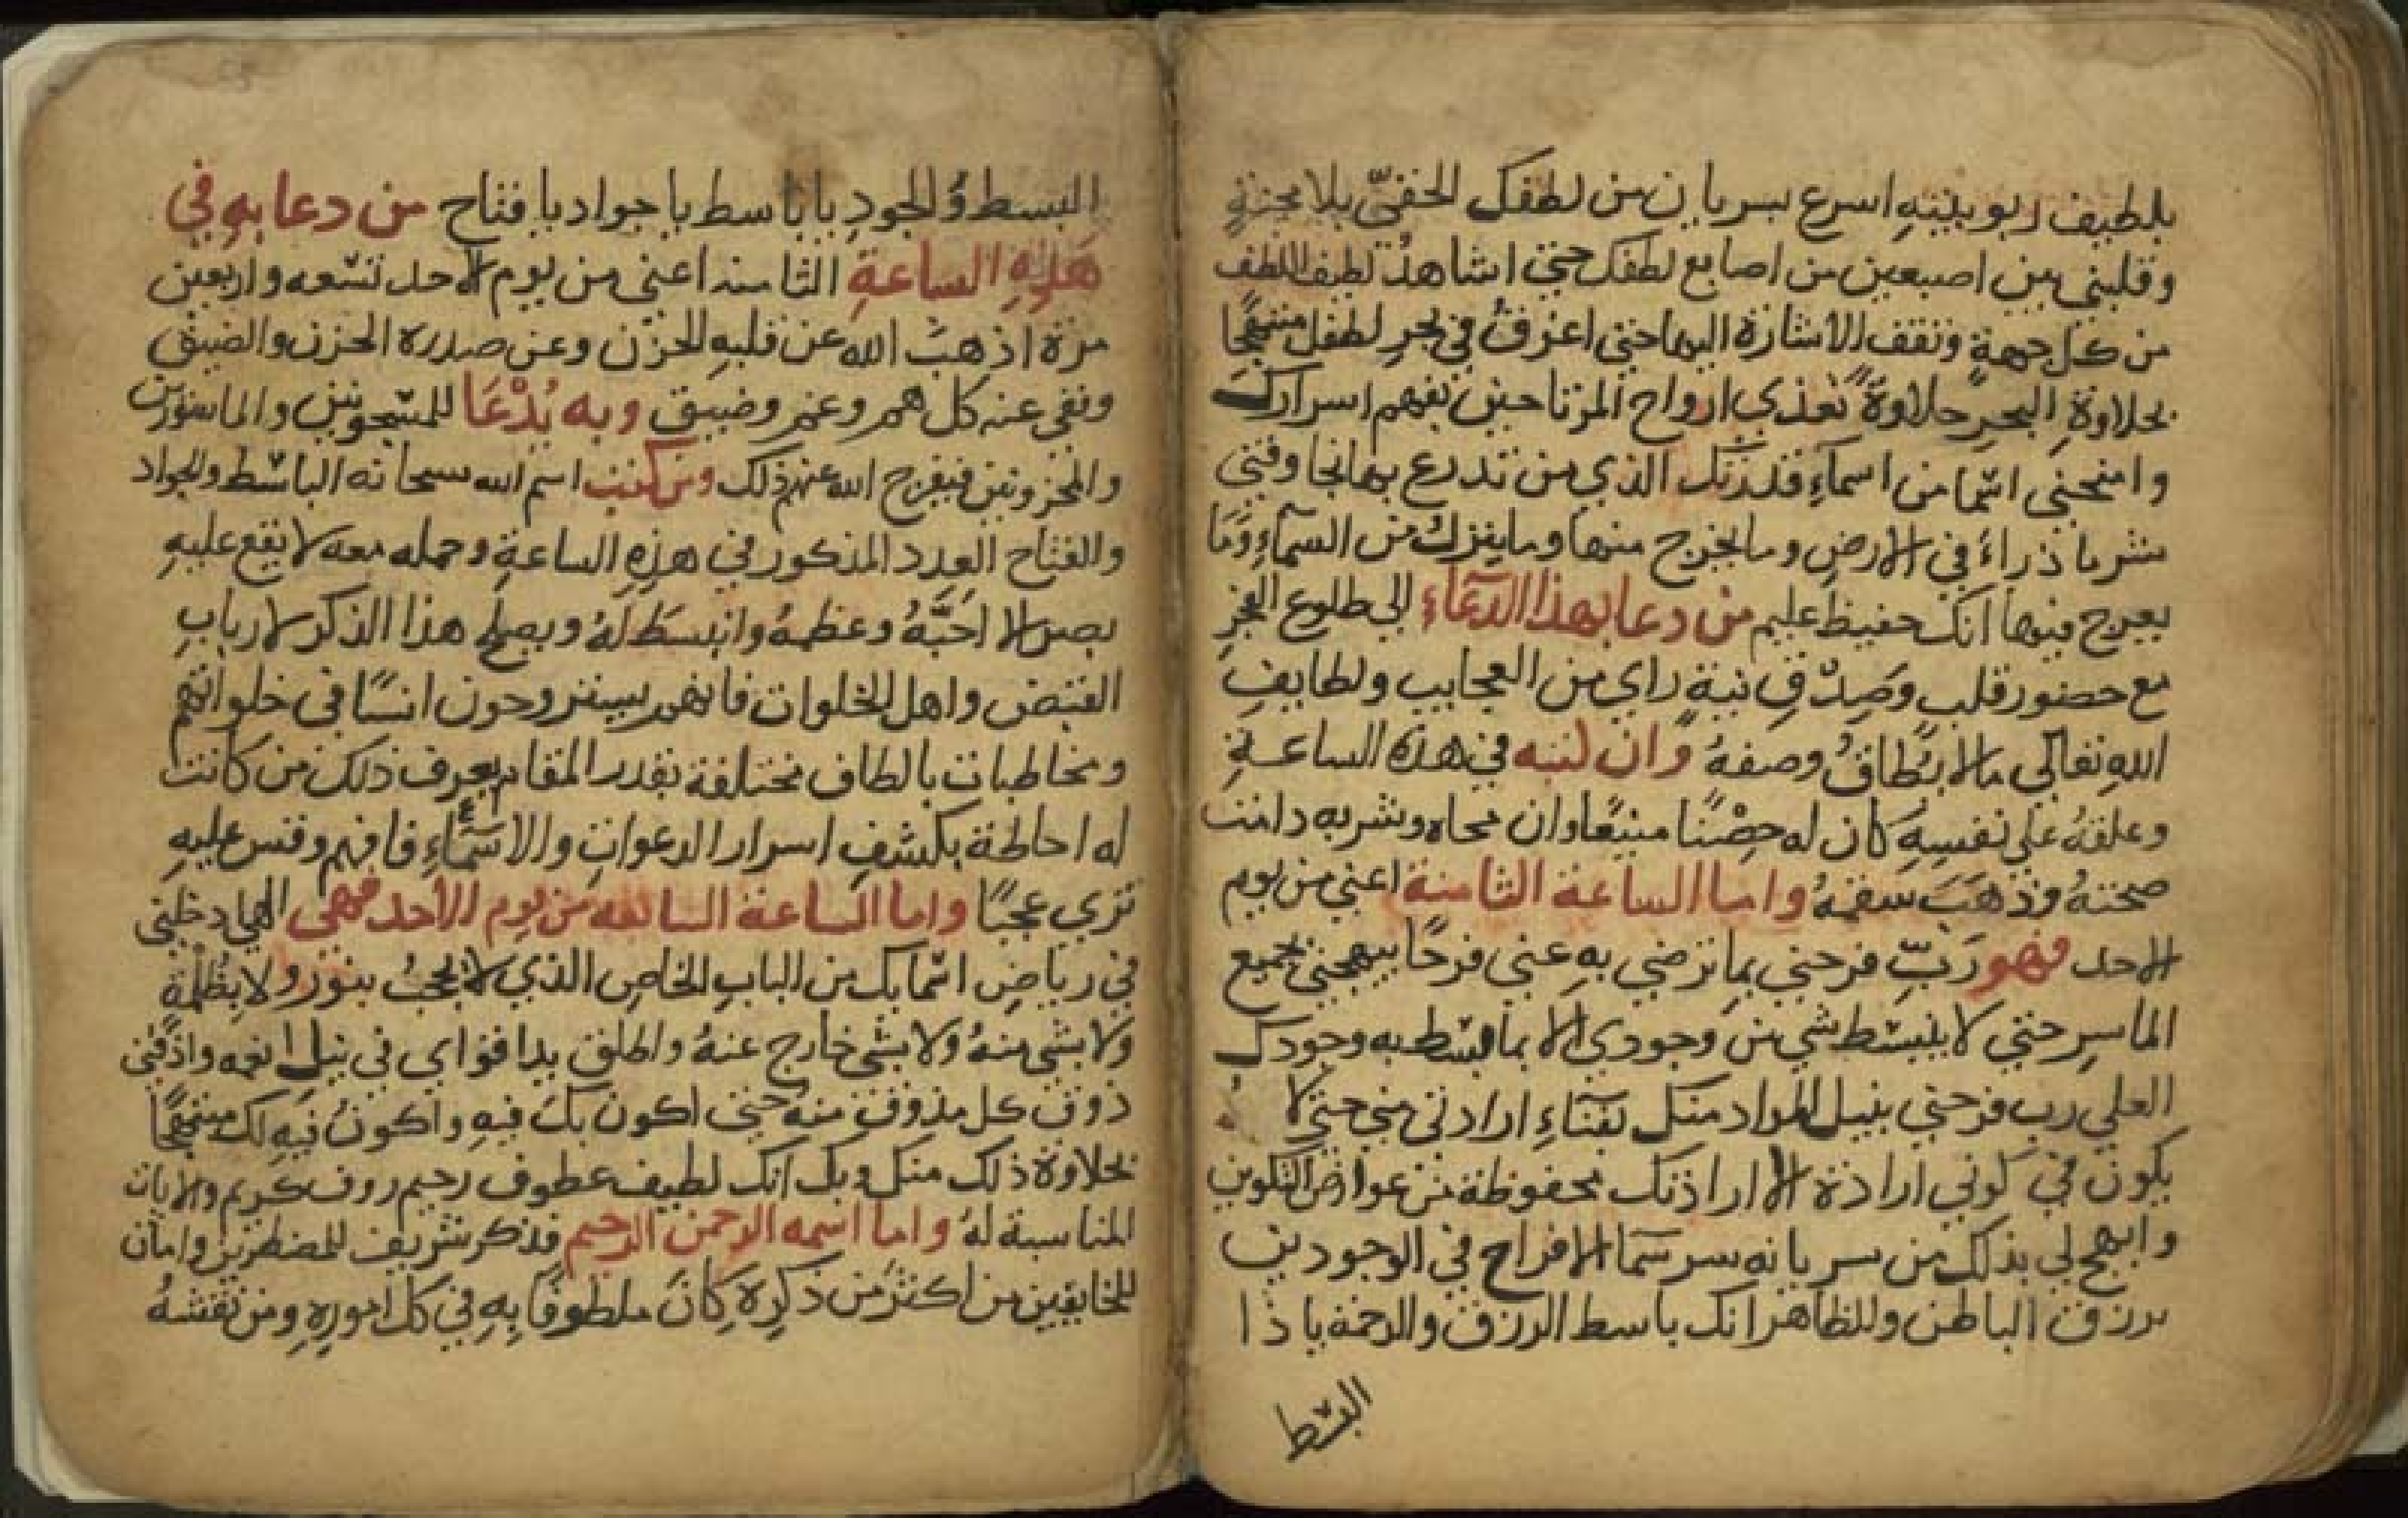 بلطيف ربوبيته اسرع بسريان من لطفك الخفيّ بلا محنةٍ
وقلبني بين اصبعين من اصابع لطفك حتي اشاهد لطيف اللطف
من كل جهةٍ وتقف الاشارة اليها حتي اغرق في بحر لطفك مبتهجًا
بحلاوة البحر حلاوةً تغذي ارواح المرتاحين بفهم اسرارك
وامنحني اسمًا من اسماءِ قدرتك الذي من تدرع بها نجا وقني
شر ما ذراءَ في الارض وما يخرج منها وما ينزل من السماءِ وما
يعرج فيها انك حفيظ عليم من دعا بهذا الدعاء الي طلوع الفجر
مع حضور قلب وصدق نية راي من العجايب ولطايف
الله تعالي ما لا يُطاق وصفهُ وان كتبه في هذه الساعة
وعلقهُ علي نفسهِ كان له حِصْنًا منيعًا وان محاه وشربه دامت
صحته وذهب سقمهُ واما الساعة الثامنة اعني من يوم
الاحد فهو رَبِّ فرحني بما ترضي بهِ عني فرحًا يبهجني بجميع
المآسر حتي لا ينبسط شي من وجودي الا بما انبسط به وجودك
العلي رب فرحني بنيل المراد منك بفناءِ ارادتي مني حتي لا
يكون في كوني ارادة الا ارادتك محفوظة من عوارض التكوين
وابهج لي بذلك من سريانه سر سَمَا الافراح في الوجودين
برزق الباطن وللظاهر انك باسط الرزق والرحمة يا ذا
البسط
البسط وَالجودِ يا باسط يا جواد يا فتاح من دعا به في
هذه الساعةِ الثامنه اعني من يوم الاحد تسعه واربعين
مرة اذهبَ الله عن قلبهِ الحزن وعن صدره الحزن والضيق
ونفي عنه كل هم وغم وضيق وبه يُدْعَا للمسجونين والماسورين
والمحزونين فيفرج الله عنهم ذلك ومن كتب اسم الله سبحانه الباسط والجواد
والفتاح العدد المذكور في هذهِ الساعةِ وحمله معه لا يقع عليهِ
بصر الا احَبَّهُ وعظمهُ وانبسَط لهُ ويصلح هذا الذكر لاربابِ
القبض واهل الخلوات فانهم يستروحون انسًا في خلواتهم
ومخاطبات بالطاف مختلفة بقدر المقام يعرف ذلك من كانت
له احاطة بكشفِ اسرار الدعوات والاسماءِ فافهم وقس عليهِ
تري عجبًا واما الساعة السابعه من يوم الاحد فهي الهي ادخلني
في رياضِ اسمايك من البابِ الخاص الذي لا يحجبُ بنورٍ ولا بِظُلْمة
ولا بشي منهُ ولا بشي خارج عنهُ واطلق يدا قواي في نيل انعمه واذقني
ذوق كل مذوق منهُ حتي اكون بك فيهِ واكونُ فيهِ لك مبتهجًا
بحلاوة ذلك منك وبك انك لطيف عطوف رحيم روف كريم والايات
المناسبة لهُ واما اسمه الرحمن الرحيم فذكر شريف للمضطرين وامان
للخايفين من اكثر من ذكرِهِ كانَ ملطوفًا بِهِ في كل امورِهِ ومن نقشهُ